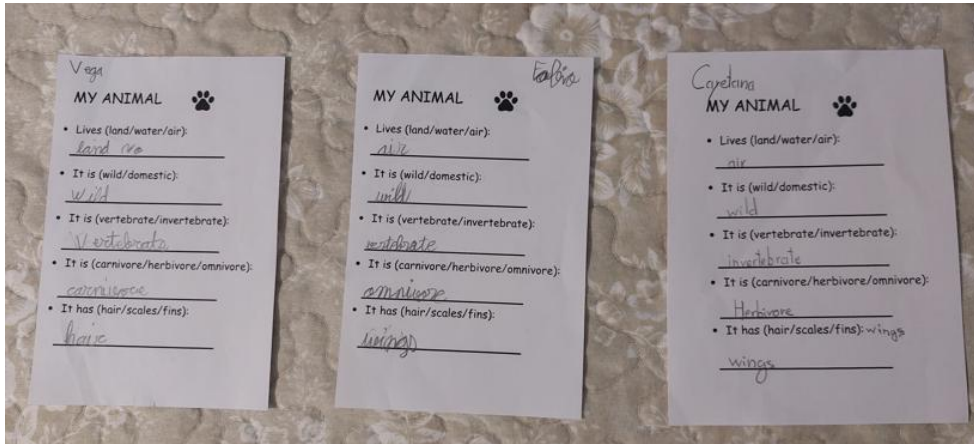 Vega
MY ANIMAL
• Lives (land/water/air):
land
• It is (wild/domestic):
Wild
• It is (vertebrate/invertebrate):
Vertebrate
• It is (carnivore/herbivore/omnivore):
carnivore
• It has (hair/scales/fins):
hair
MY ANIMAL
• Lives (land/water/air):
air
• It is (wild/domestic):
wild
• It is (vertebrate/invertebrate):
vertebrate
• It is (carnivore/herbivore/omnivore):
omnivore
• It has (hair/scales/fins):
wings
Cayetana
MY ANIMAL
• Lives (land/water/air):
air
• It is (wild/domestic):
wild
• It is (vertebrate/invertebrate):
invertebrate
• It is (carnivore/herbivore/omnivore):
Herbivore
• It has (hair/scales/fins): wings
wings